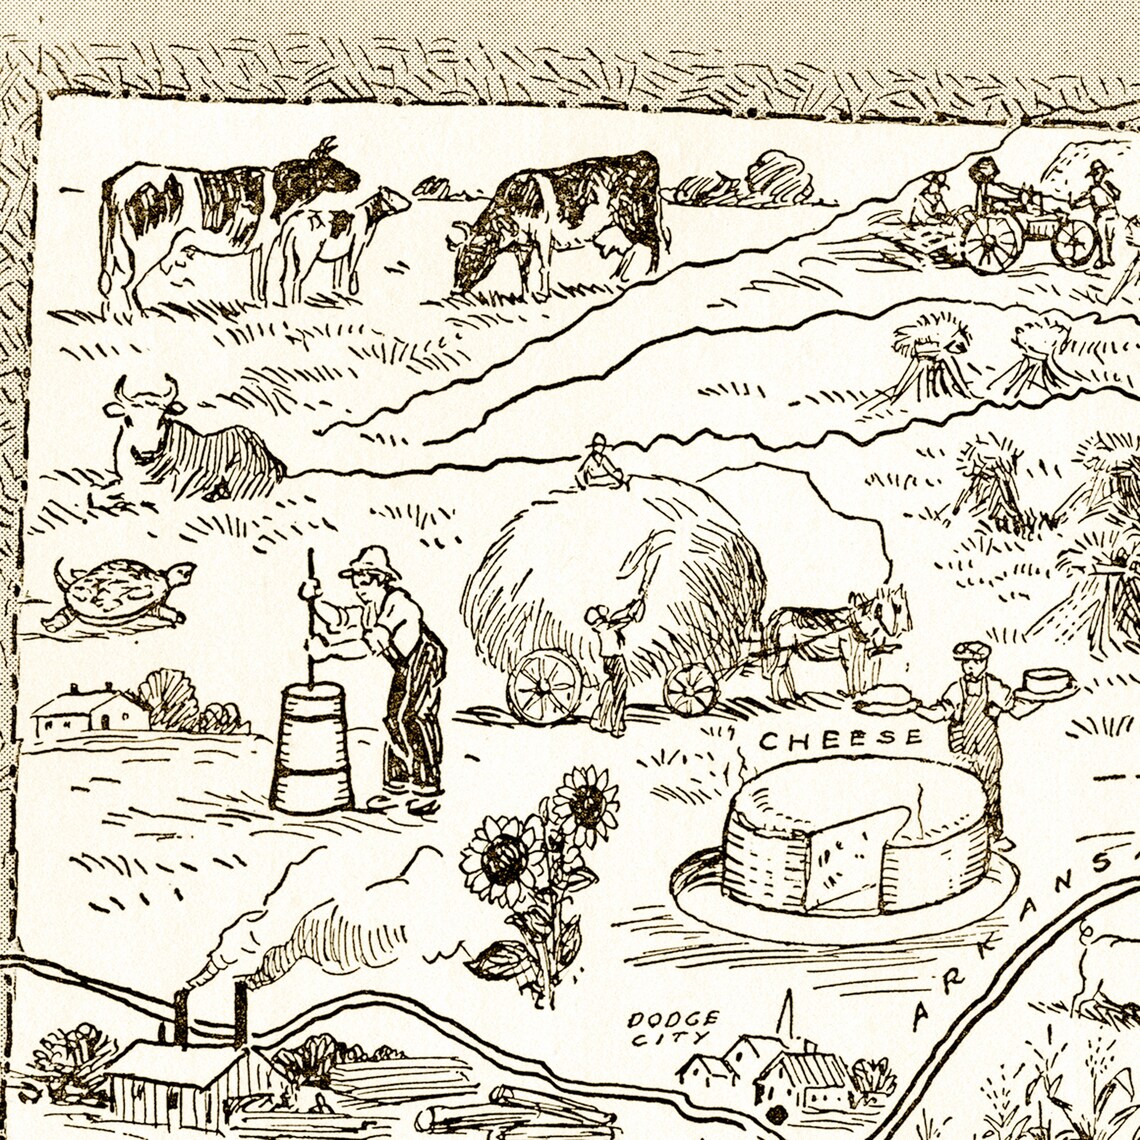 CHEESE
ARKANS
DODGE
CITY